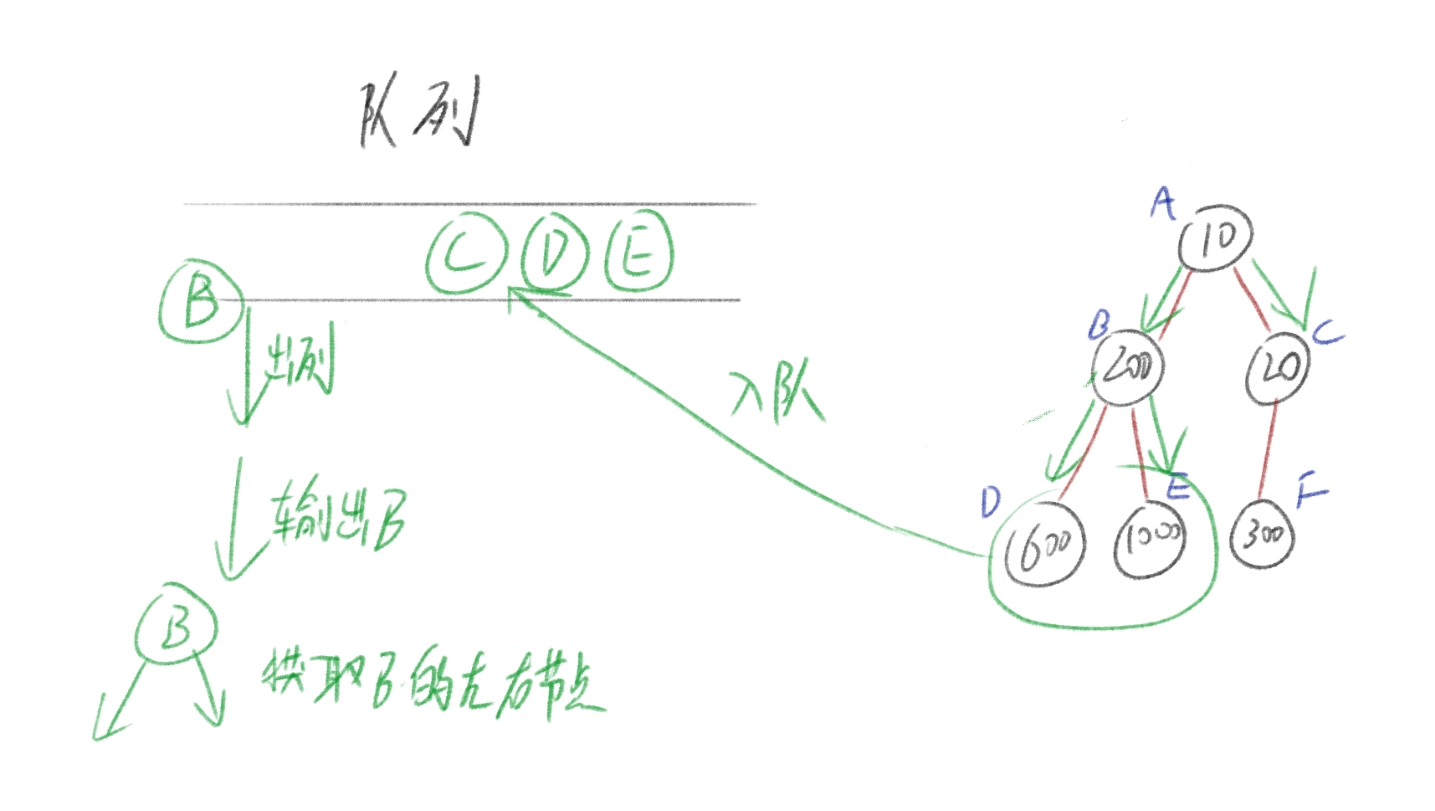 队列
C D E
B
出列
入队
输出B
B
获取B的左右节点
A
10
B
200
C
20
D
600
E
1000
F
300